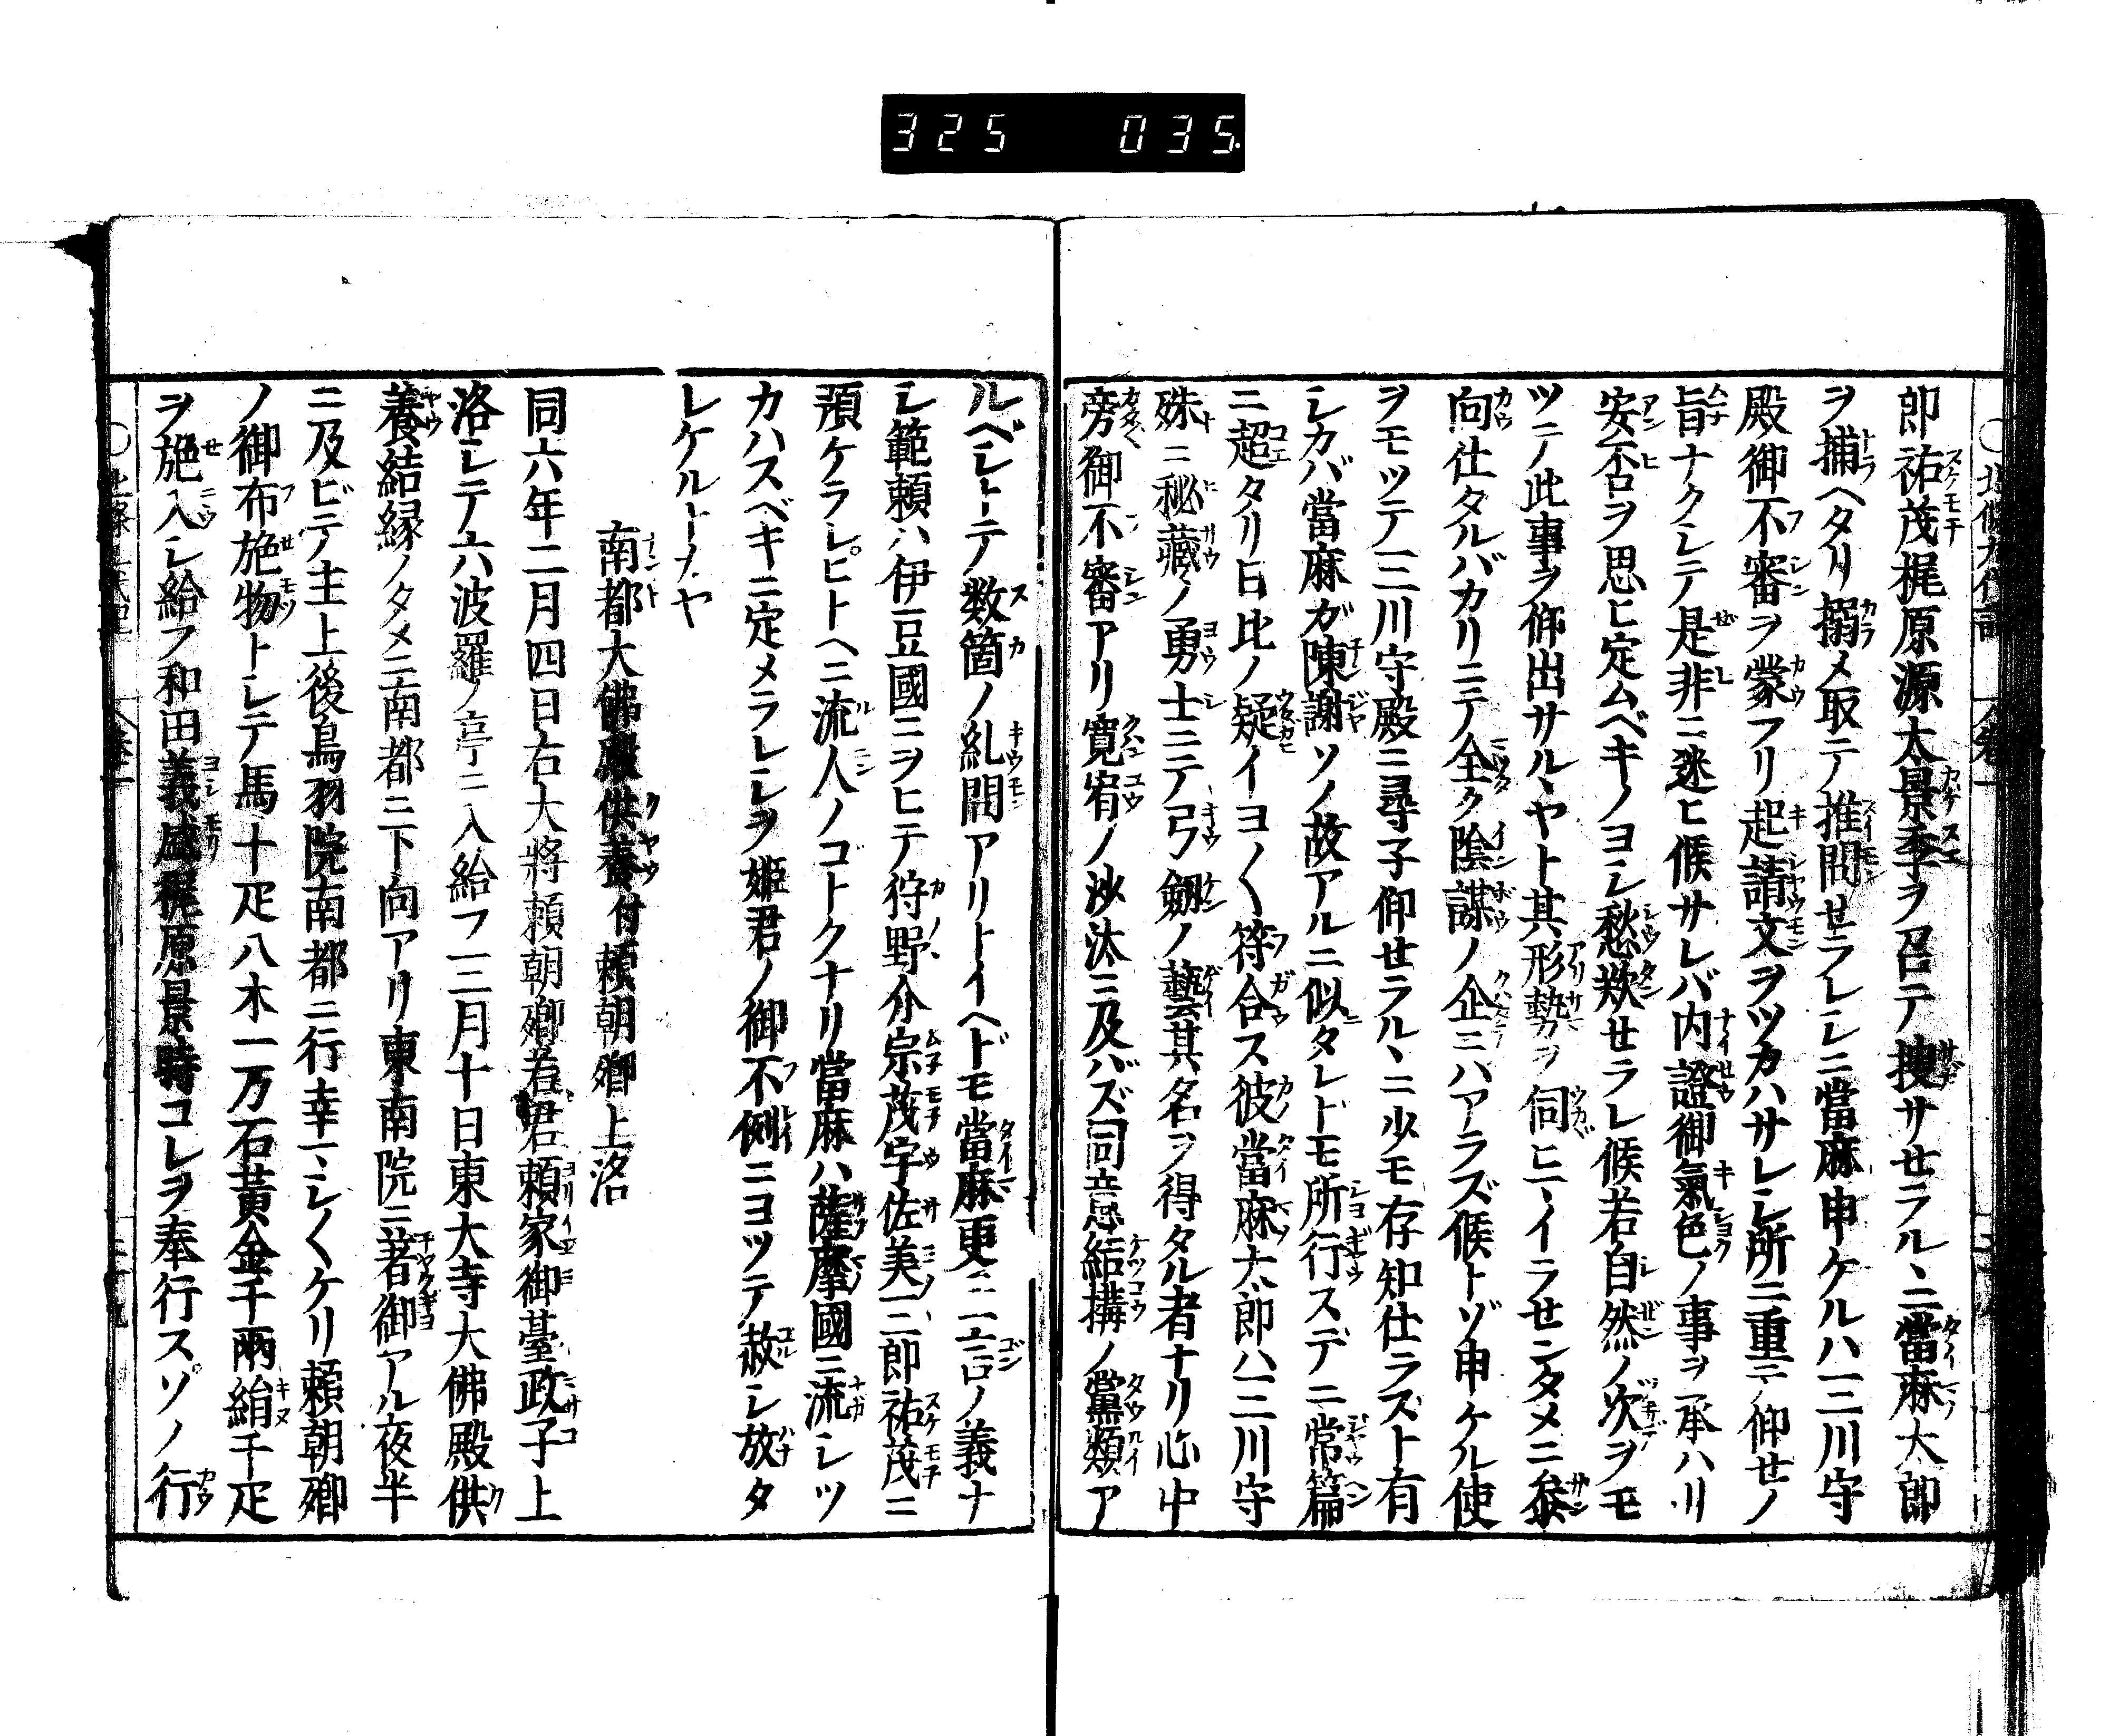 325 035.
郎祐茂梶原源太景季ヲ召テ捜サセラルヽニ當麻太郎
ヲ捕ヘタリ搦メ取テ推問せラレシニ當麻申ケルハ三川守
殿御不審ヲ蒙フリ起請文ヲツカハサレシ所ニ重テノ仰せノ
旨ナクシテ是非ニ迷ヒ候サレバ内證御氣色ノ事ヲ承ハリ
安否ヲ思ヒ定ムベキノヨシ愁歎せラレ候若自然ノ次ヲモ
ツテ此事ヲ仰出サルヽヤト其形勢ヲ伺ヒマイラせンタメニ參
向仕タルバカリニテ全ク陰謀ノ企ニハアラズ候トゾ申ケル使
ヲモツテ三川守殿ニ尋子仰せラルヽニ少モ存知仕ラズト有
シカバ當麻ガ陳謝ソノ故アルニ似タレトモ所行スデニ常篇
ニ超タリ日比ノ疑イヨ〱符合ス彼當麻太郎ハ三川守
殊ニ秘藏ノ勇士ニテ弓劔ノ藝其名ヲ得タル者ナリ心中
旁御不審アリ寛宥ノ沙汰ニ及バズ同意結構ノ黨類ア
ルベシトテ数箇ノ糺問アリトイヘドモ當麻更ニ一言ノ義ナ
シ範頼ハ伊豆國ニヲヒテ狩野介宗茂宇佐美三郎祐茂ニ
預ケラレヒトヘニ流人ノゴトクナリ當麻ハ薩摩國ニ流シツ
カハスベキニ定メラレシヲ姫君ノ御不例ニヨツテ赦シ放タ
レケルトナヤ
南都大佛殿供養付頼朝卿上洛
同六年二月四日右大將頼朝卿若君頼家御臺政子上
洛シテ六波羅ノ亭ニ入給フ三月十日東大寺大佛殿供
養結縁ノタメニ南都ニ下向アリ東南院ニ著御アル夜半
ニ及ビテ主上後鳥羽院南都ニ行幸マシ〱ケリ頼朝卿
ノ御布施物トシテ馬十疋八木一万石黄金千兩絹千疋
ヲ施入シ給フ和田義盛梶原景時コレヲ奉行スソノ行